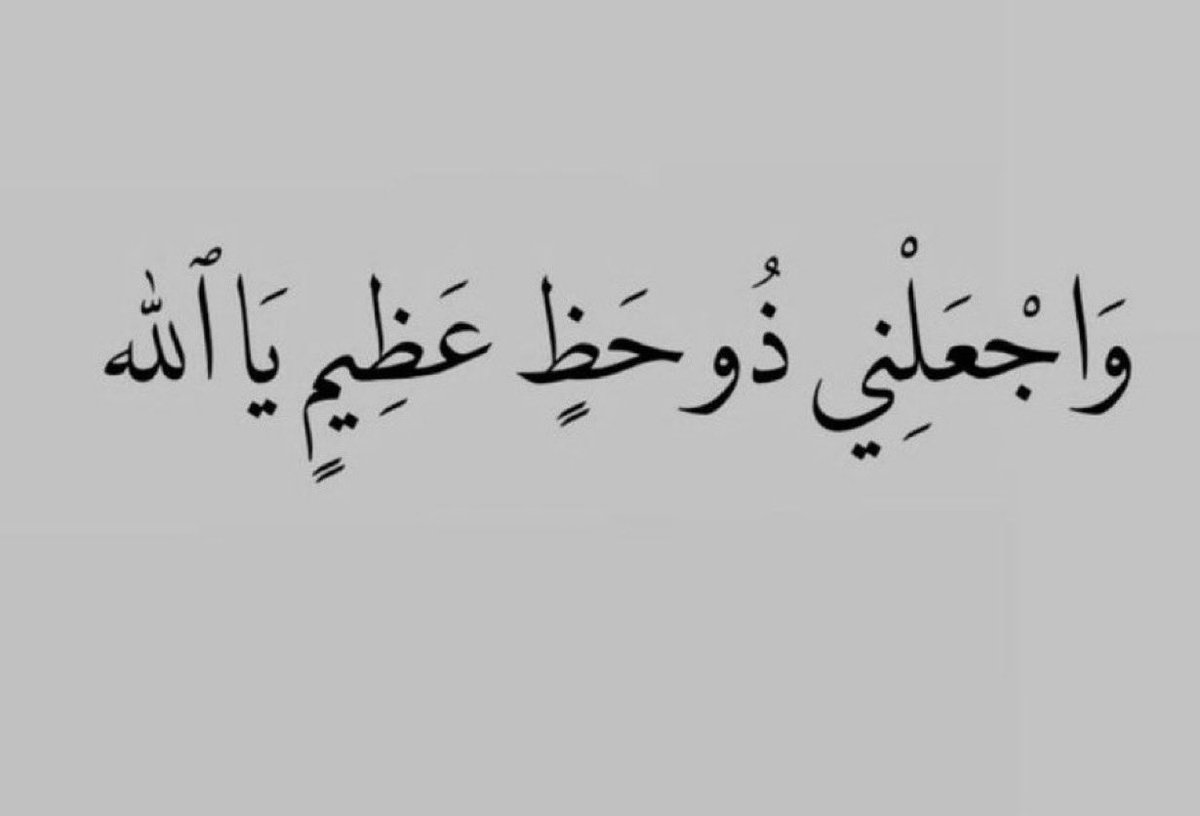 وَاجْعَلْنِي ذُو حَظٍ عَظِيمٍ يَا ٱللّٰه